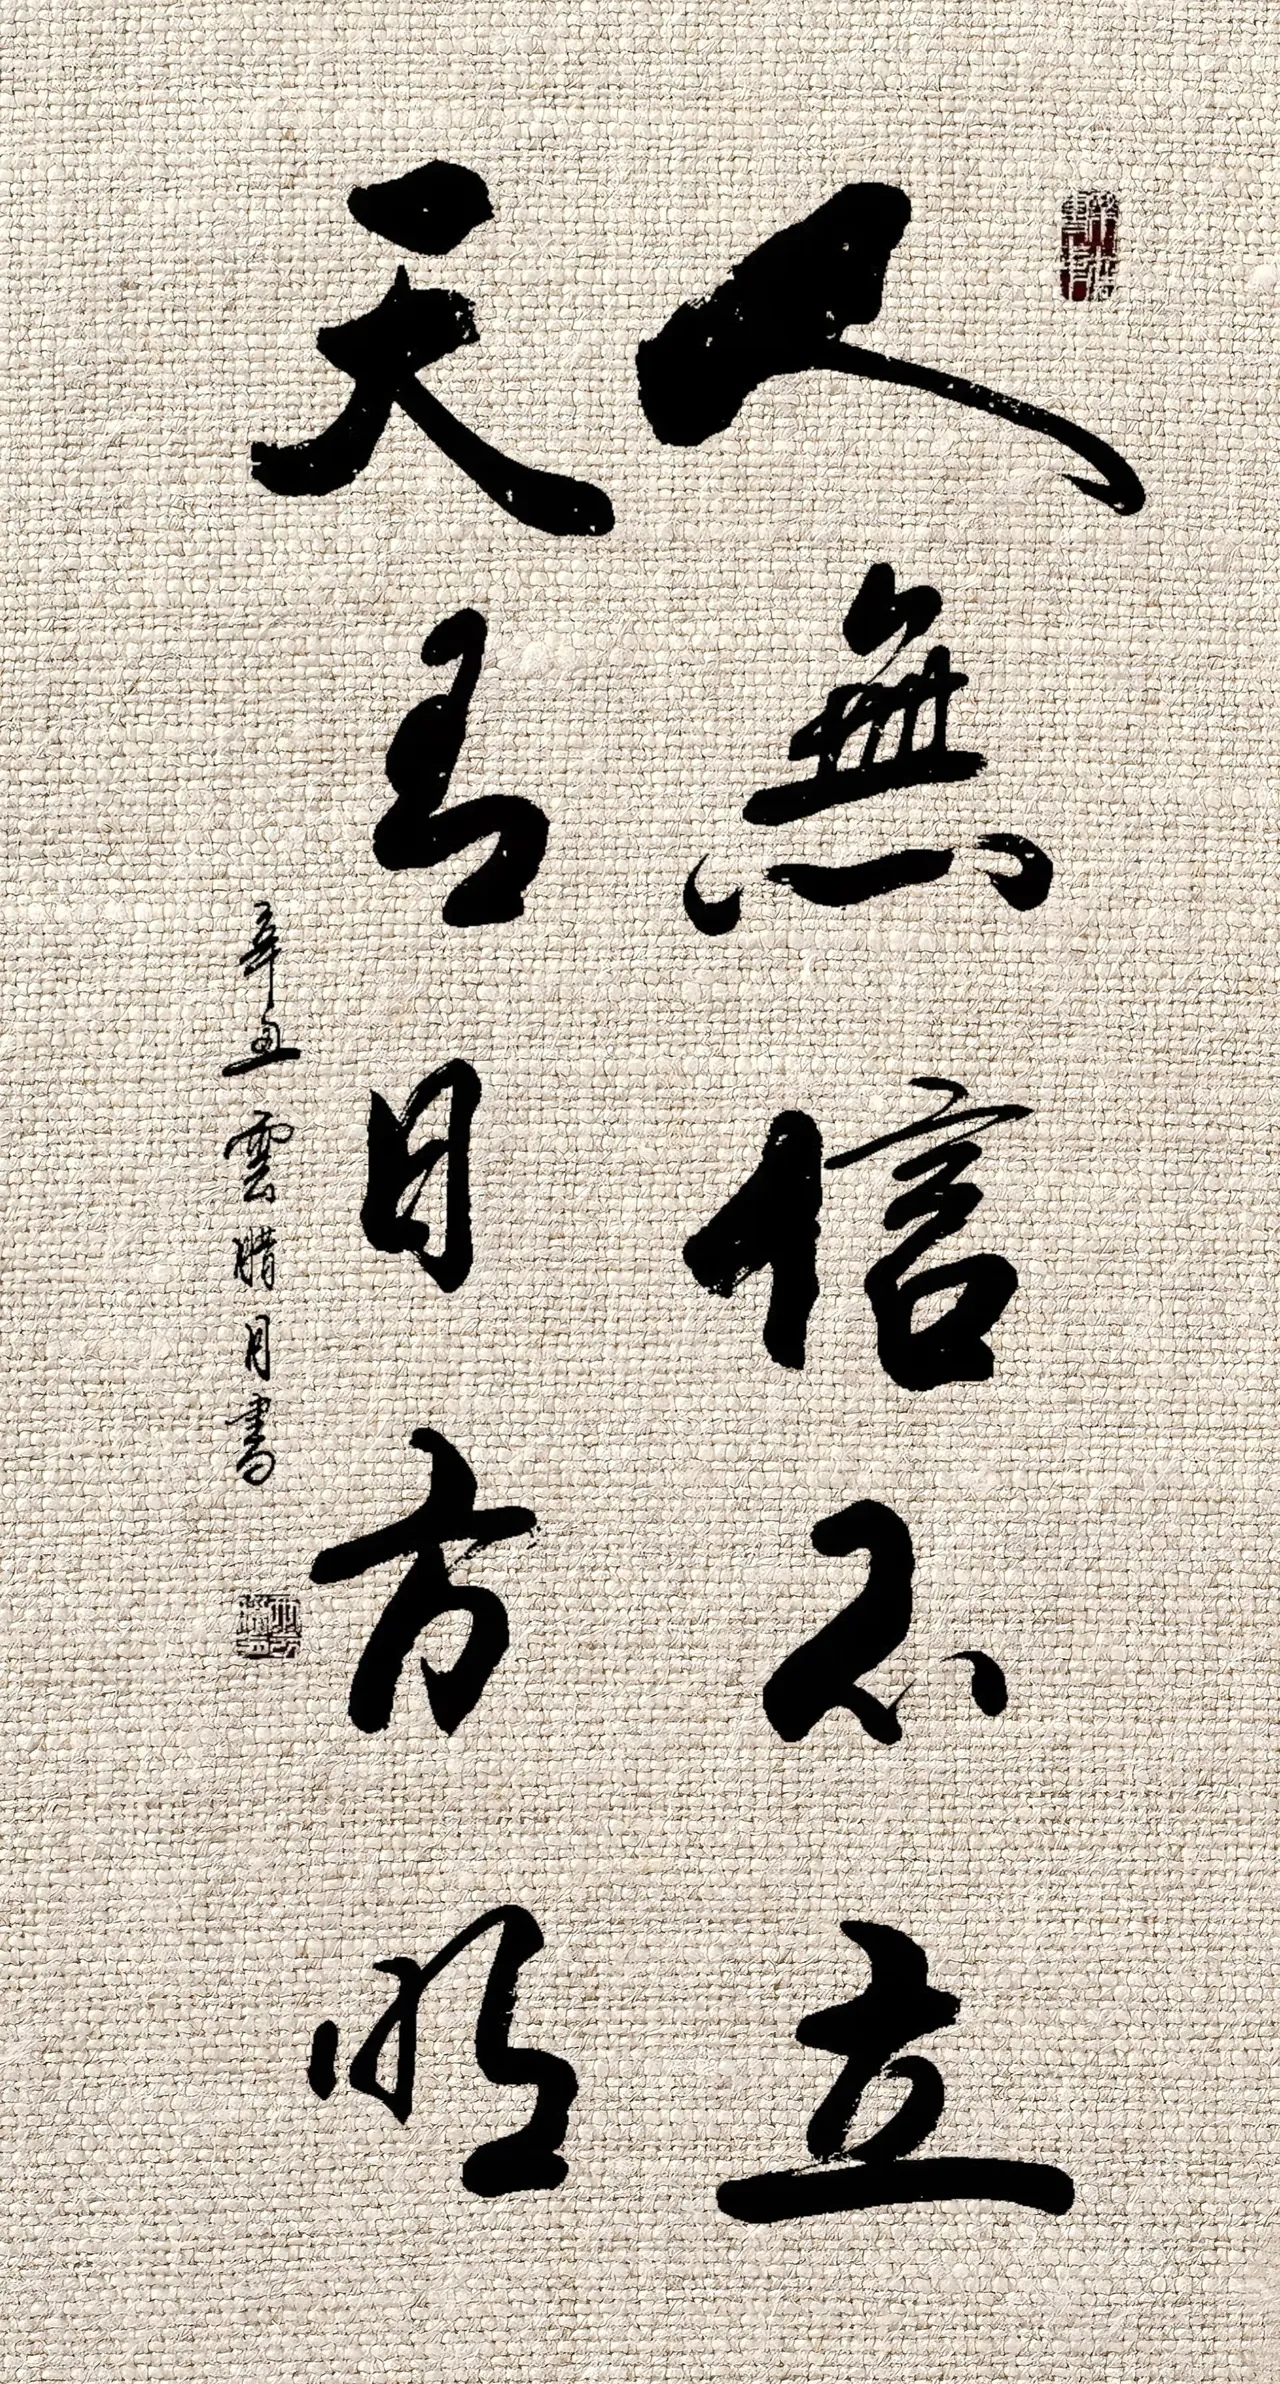 人無信不立
天有日方明
辛丑雲腊月書